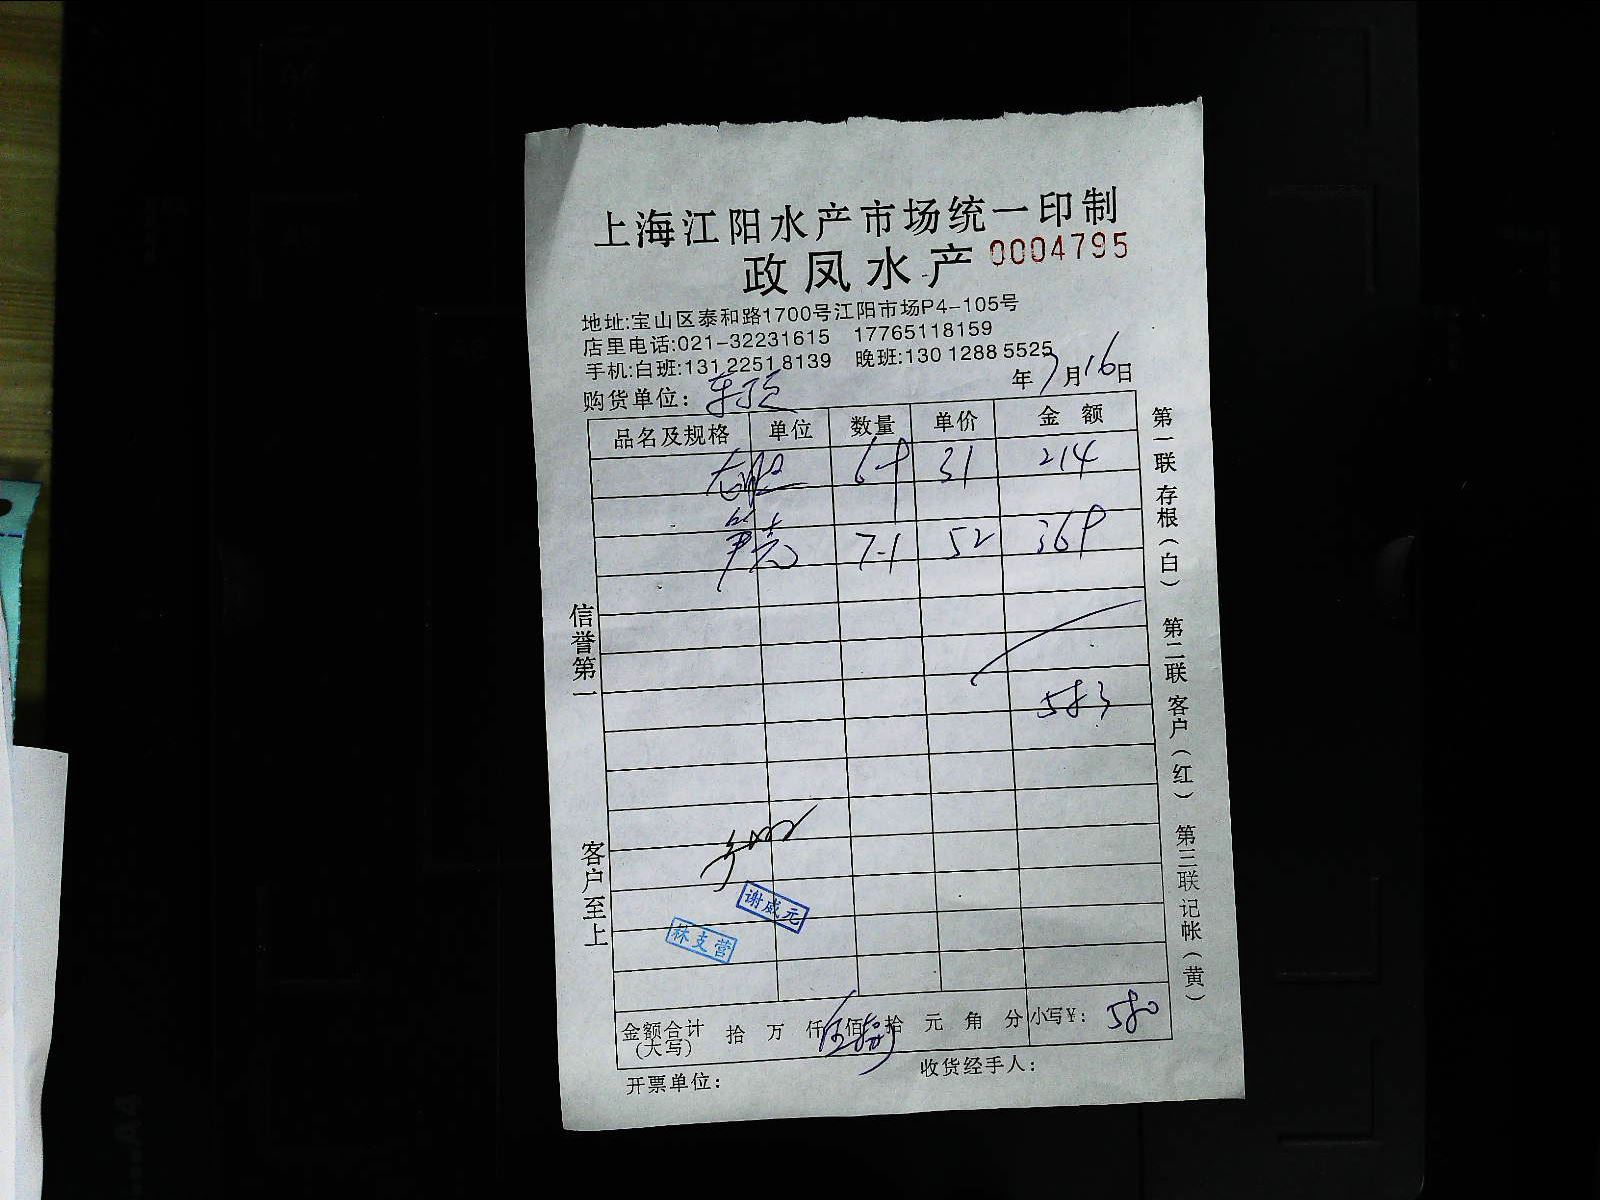 上海江阳水产市场统一印制
政凤水产 0004795
地址:宝山区泰和路1700号江阳市场P4-105号
店里电话:021-32231615 17765118159
手机:白班:131 2251 8139 晚班:130 1288 5525
购货单位: 年7月16日
品名及规格 单位 数量 单价 金额
6-9 31 214
7-1 52 369
583
信誉第一
客户至上
谢威元
林支营
金额合计(大写) 拾 万 仟 伍佰捌拾 元 角 分 小写¥: 580
开票单位: 收货经手人:
第一联 存根(白) 第二联 客户(红) 第三联 记帐(黄)
A4